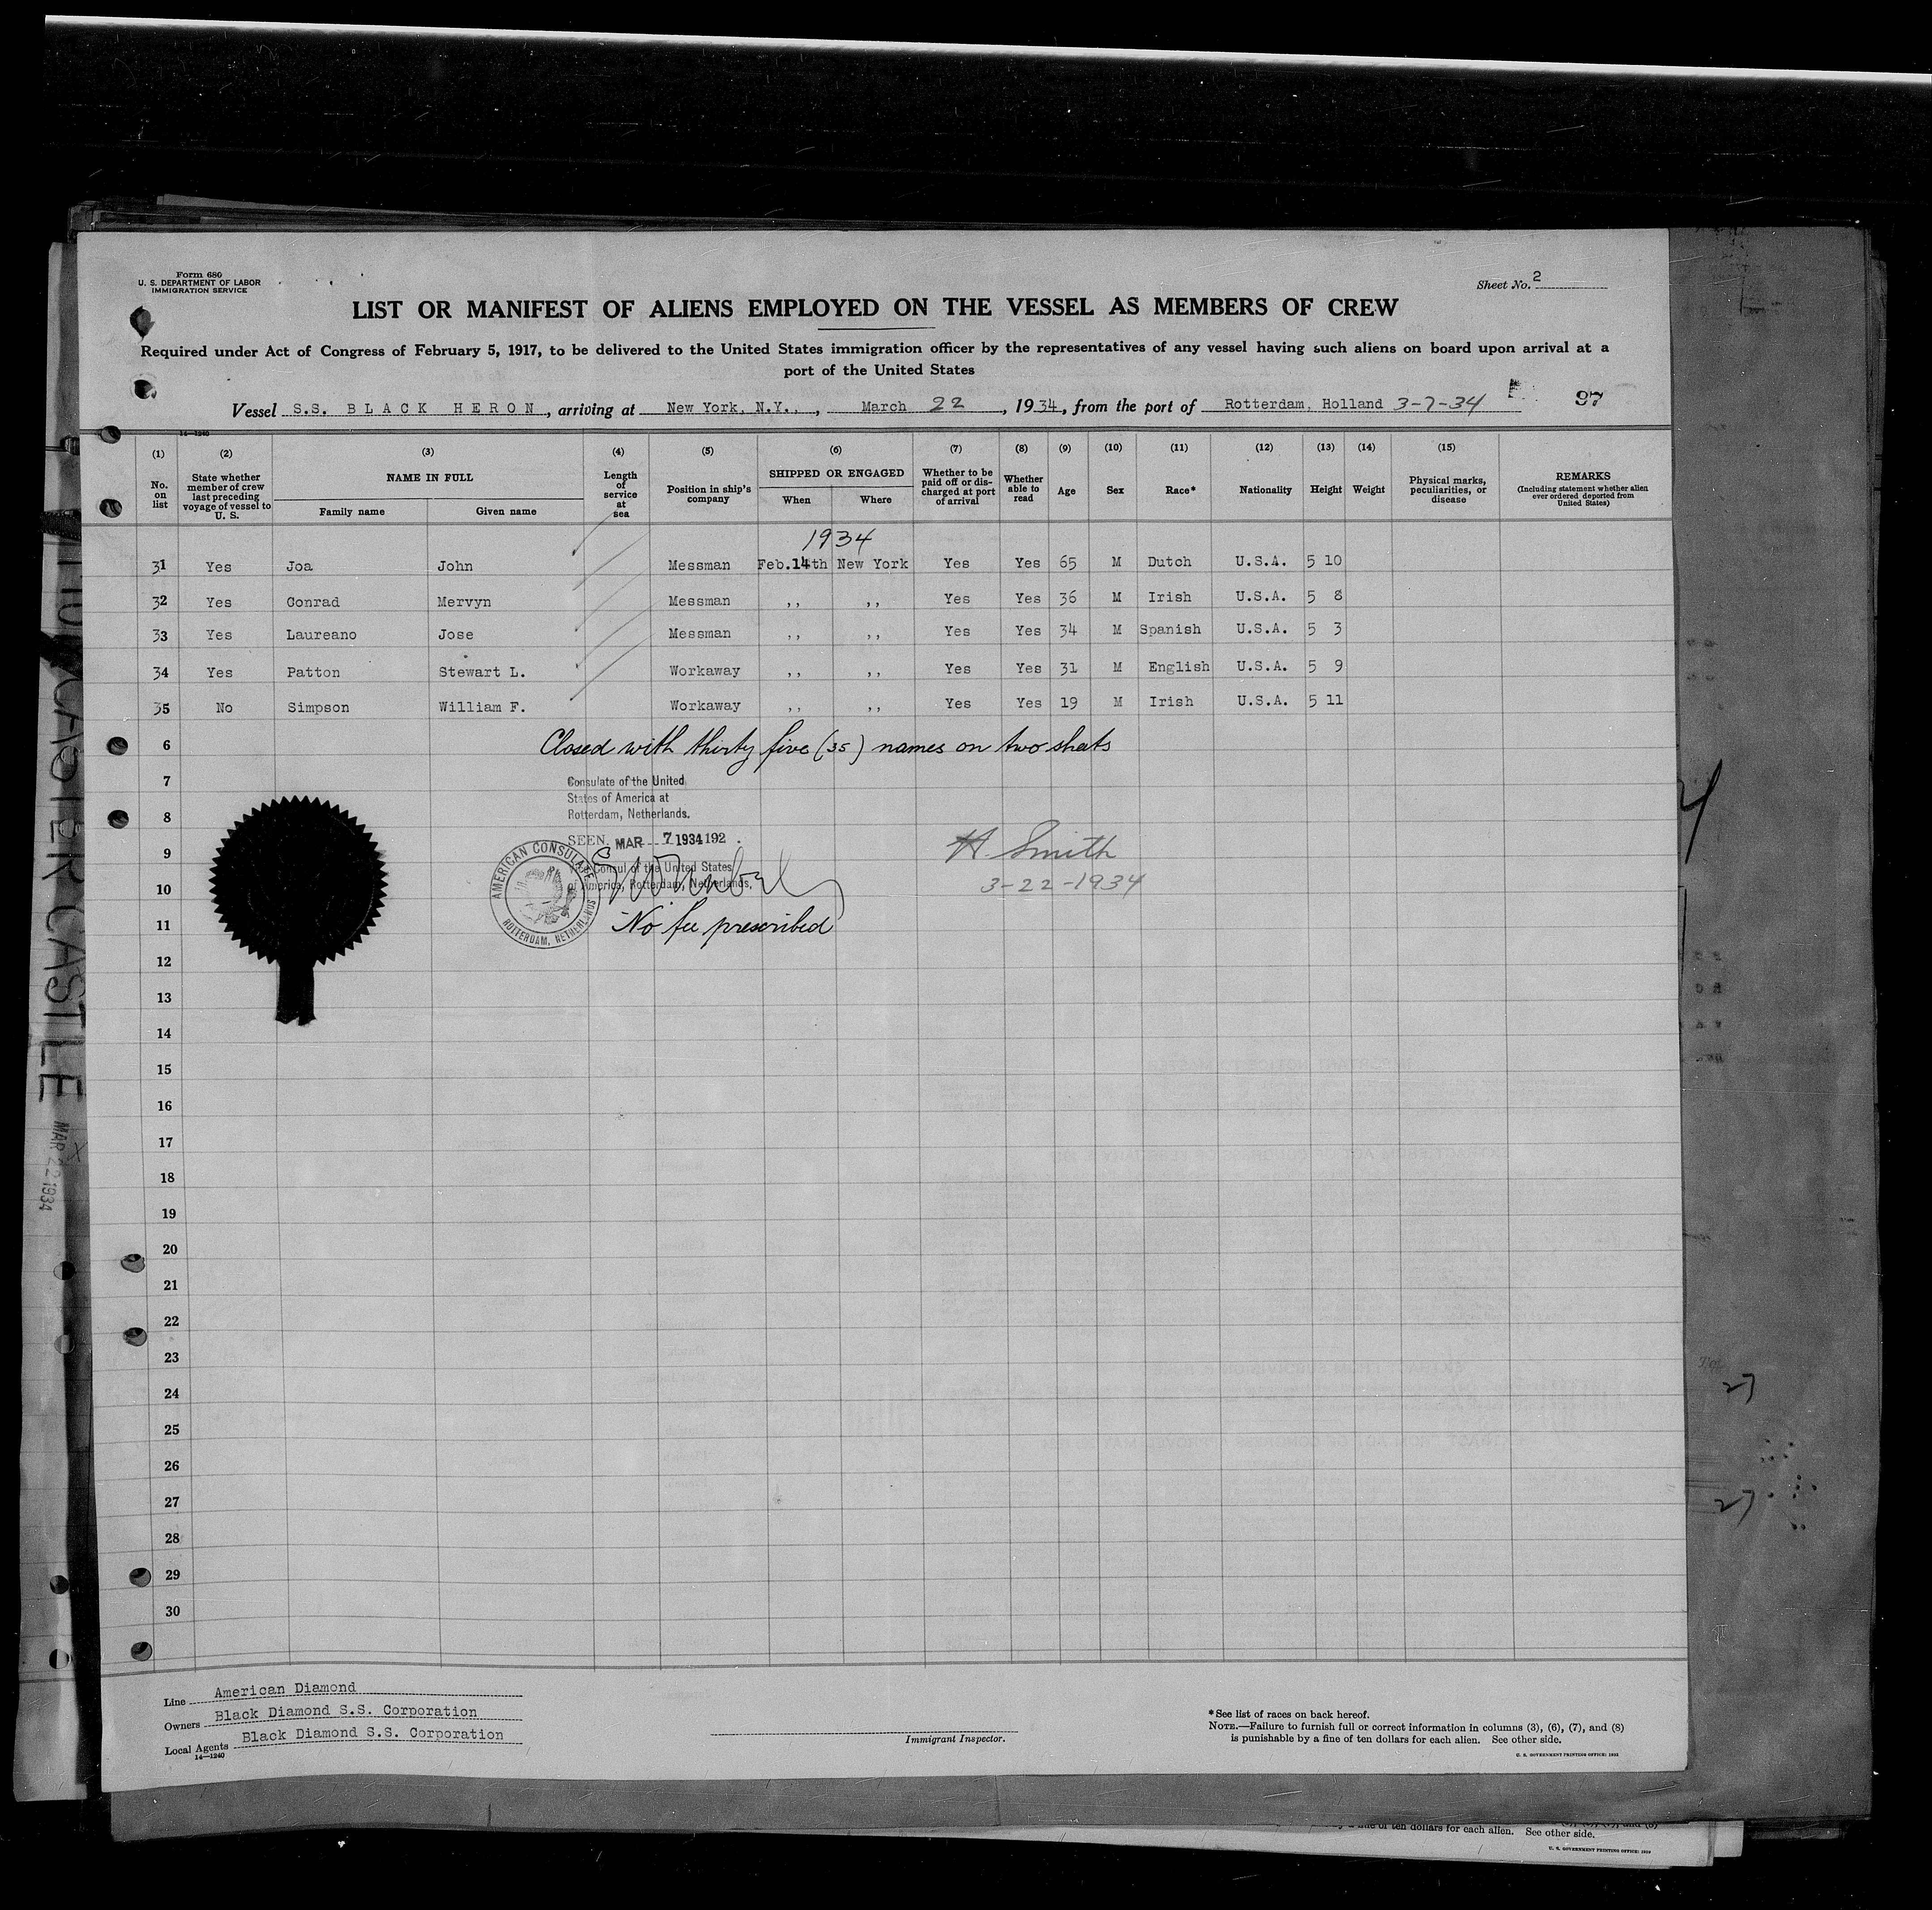 Form 680
U. S. DEPARTMENT OF LABOR
IMMIGRATION SERVICE
Sheet No. 2
LIST OR MANIFEST OF ALIENS EMPLOYED ON THE VESSEL AS MEMBERS OF CREW
Required under Act of Congress of February 5, 1917, to be delivered to the United States immigration officer by the representatives of any vessel having such aliens on board upon arrival at a
port of the United States
Vessel S.S. BLACK HERON, arriving at New York, N.Y., March 22, 1934, from the port of Rotterdam, Holland 3-7-34
97
14—1240
(1) (2) (3) (4) (5) (6) (7) (8) (9) (10) (11) (12) (13) (14) (15)
No. on list
State whether member of crew last preceding voyage of vessel to U. S.
NAME IN FULL
Family name
Given name
Length of service at sea
Position in ship's company
SHIPPED OR ENGAGED
When
Where
Whether to be paid off or discharged at port of arrival
Whether able to read
Age
Sex
Race*
Nationality
Height
Weight
Physical marks, peculiarities, or disease
REMARKS
(Including statement whether alien ever ordered deported from United States)
1934
31 Yes Joa John Messman Feb.14th New York Yes Yes 65 M Dutch U.S.A. 5 10
32 Yes Conrad Mervyn Messman ,, ,, Yes Yes 36 M Irish U.S.A. 5 8
33 Yes Laureano Jose Messman ,, ,, Yes Yes 34 M Spanish U.S.A. 5 3
34 Yes Patton Stewart L. Workaway ,, ,, Yes Yes 31 M English U.S.A. 5 9
35 No Simpson William F. Workaway ,, ,, Yes Yes 19 M Irish U.S.A. 5 11
6 Closed with thirty five (35) names on two sheets
7 Consulate of the United
States of America at
8 Rotterdam, Netherlands.
SEEN MAR 7 1934 192 .
9 H. Smith
Vice Consul of the United States
10 of America, Rotterdam, Netherlands,
3-22-1934
AMERICAN CONSULATE
ROTTERDAM, NETHERLANDS
11 No fee prescribed
12
13
14
15
16
17
18
19
20
21
22
23
24
25
26
27
28
29
30
Line American Diamond
Owners Black Diamond S.S. Corporation
Local Agents Black Diamond S.S. Corporation
14—1240
Immigrant Inspector.
*See list of races on back hereof.
NOTE.—Failure to furnish full or correct information in columns (3), (6), (7), and (8)
is punishable by a fine of ten dollars for each alien. See other side.
U. S. GOVERNMENT PRINTING OFFICE: 1932
CASTLE
MAR 22 1934
27
27
of ten dollars for each alien. See other side.
U. S. GOVERNMENT PRINTING OFFICE: 1929